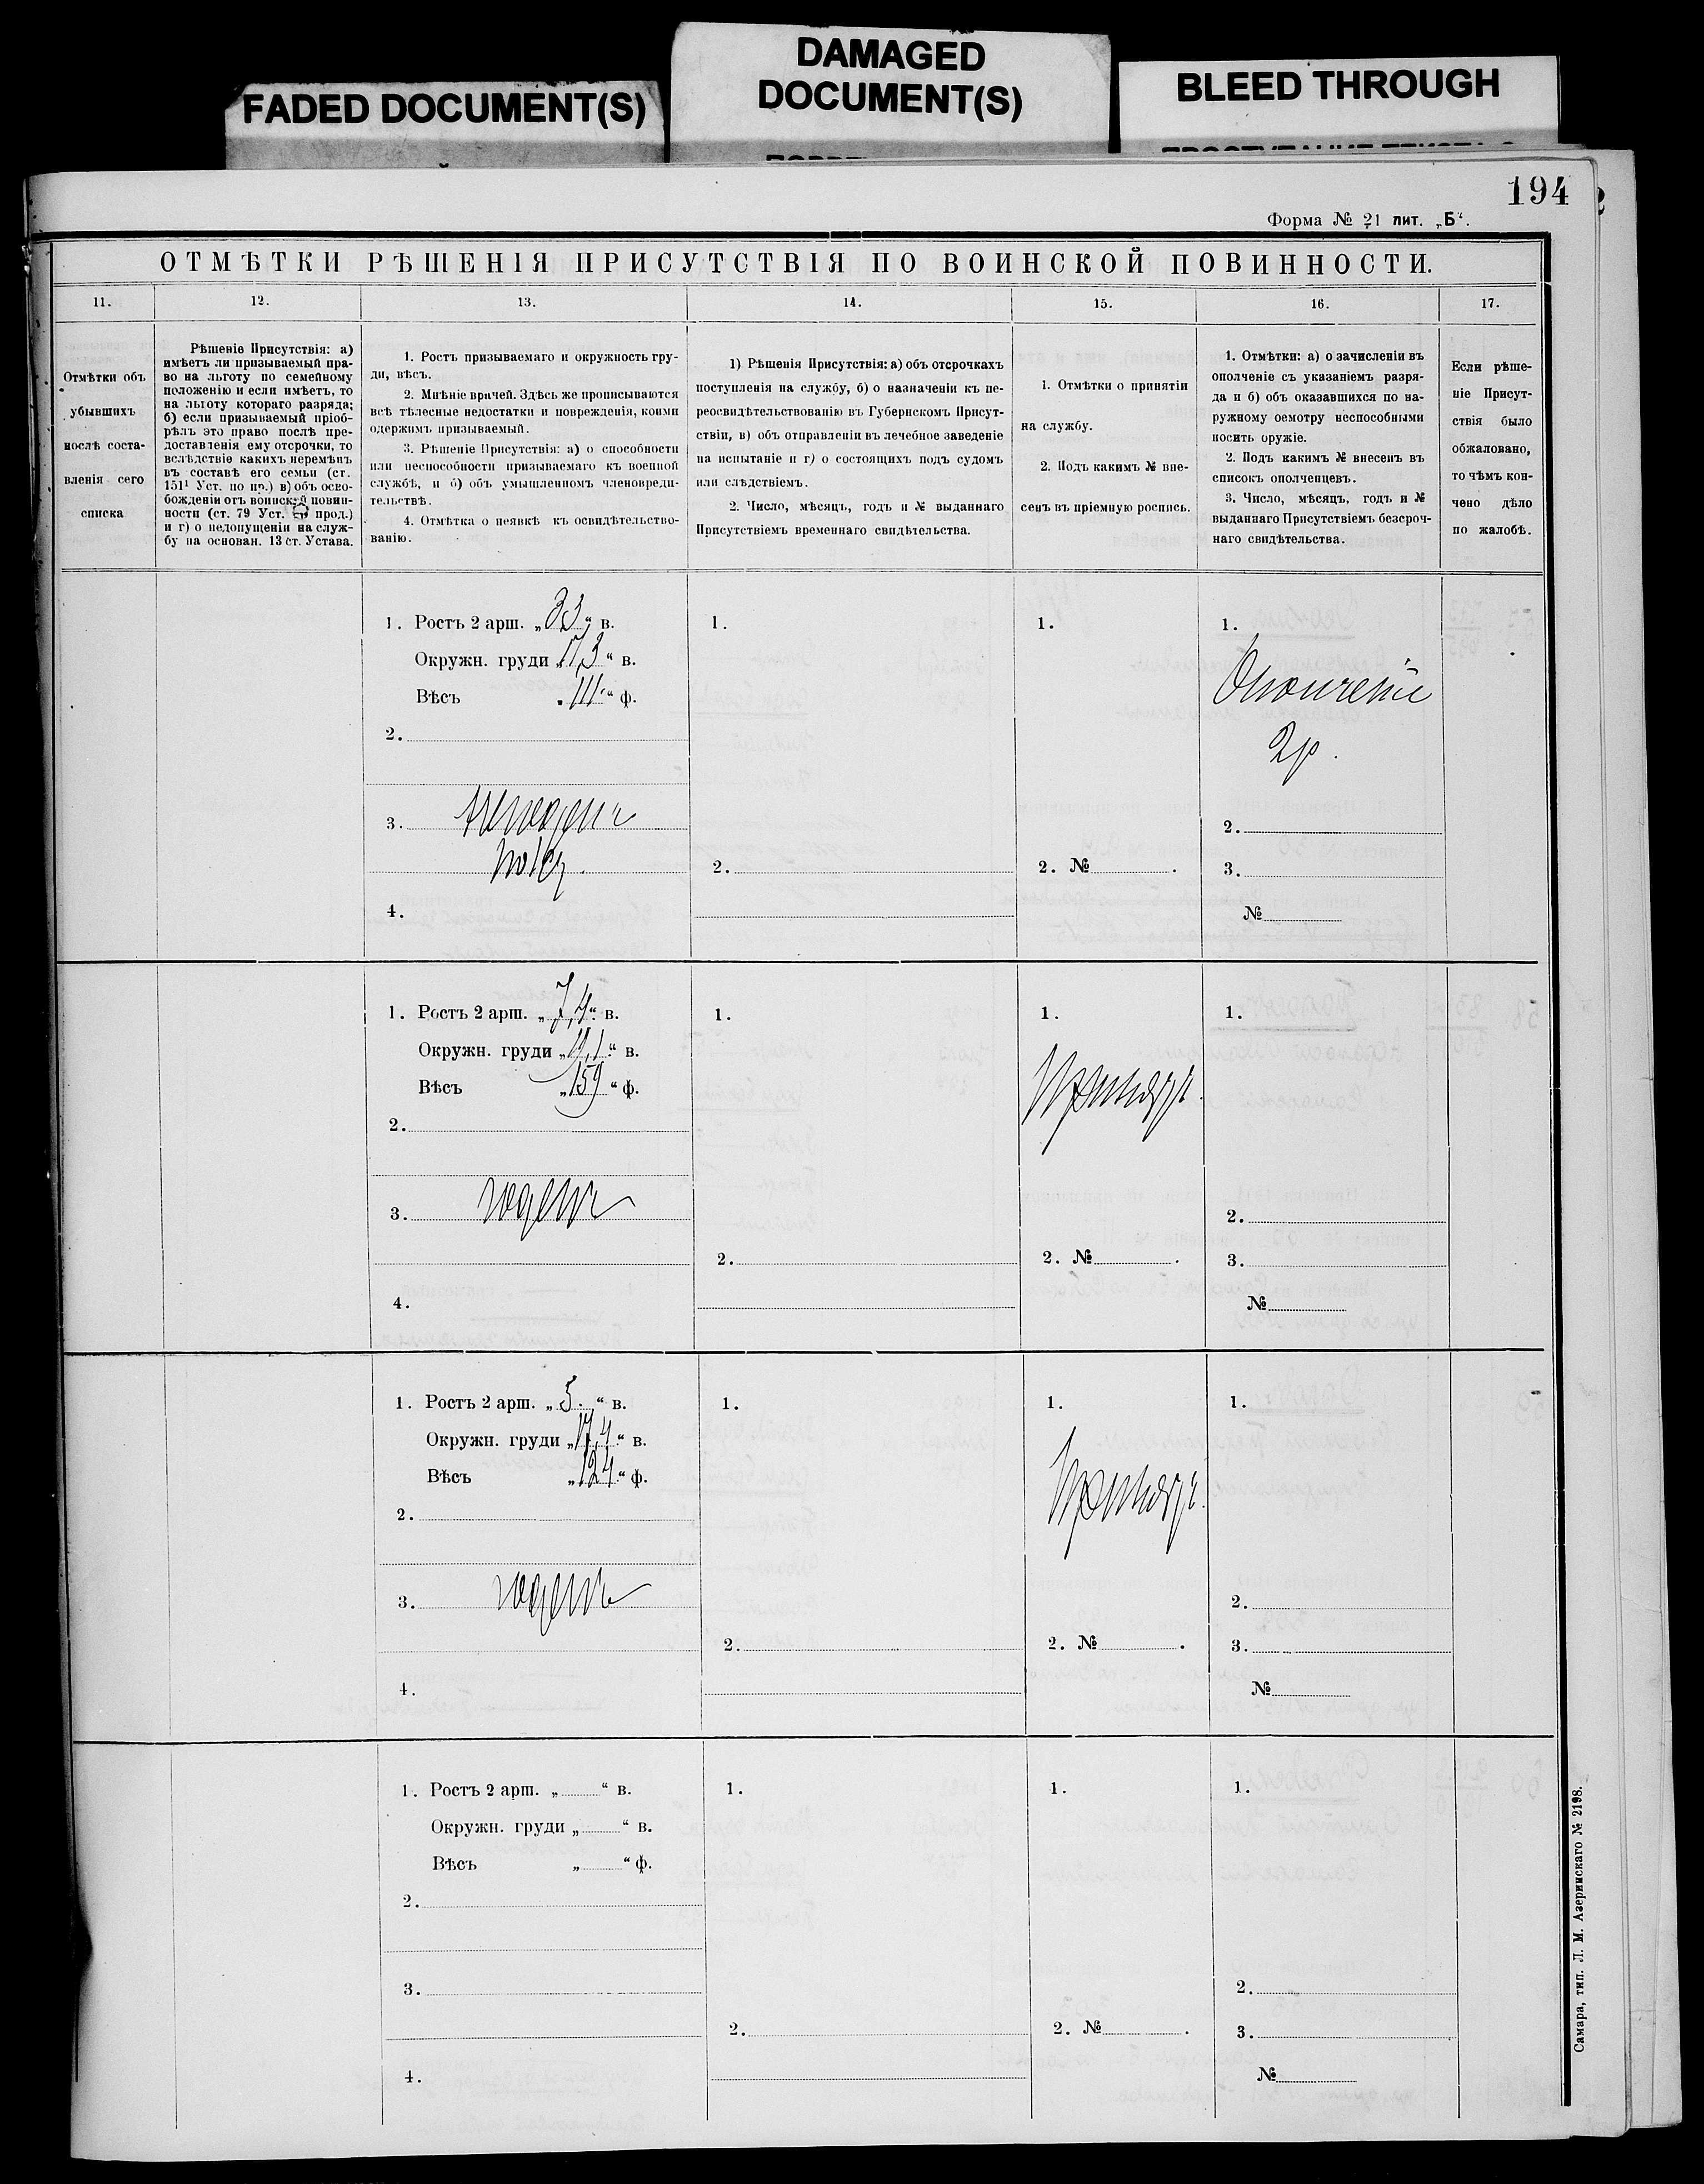 FADED DOCUMENT(S)
DAMAGED
DOCUMENT(S)
BLEED THROUGH
194
Форма № 21 лит. „Б“.
ОТМѢТКИ РѢШЕНІЯ ПРИСУТСТВІЯ ПО ВОИНСКОЙ ПОВИННОСТИ.
11.
12.
13.
14.
15.
16.
17.
Отмѣтки объ
убывшихъ
послѣ соста-
вленія сего
списка
Рѣшеніе Присутствія: а)
имѣетъ ли призываемый пра-
во на льготу по семейному
положенію и если имѣетъ, то
на льготу котораго разряда;
б) если призываемый пріоб-
рѣлъ это право послѣ пре-
доставленія ему отсрочки, то
вслѣдствіе какихъ перемѣнъ
въ составѣ его семьи (ст.
151¹ Уст. по пр.) в) объ осво-
божденіи отъ воинской повин-
ности (ст. 79 Уст. прод.)
и г) о недопущеніи на служ-
бу на основан. 13 ст. Устава.
1. Ростъ призываемаго и окружность гру-
ди, вѣсъ.
2. Мнѣніе врачей. Здѣсь же прописываются
всѣ тѣлесные недостатки и поврежденія, коими
одержимъ призываемый.
3. Рѣшеніе Присутствія: а) о способности
или неспособности призываемаго къ военной
службѣ, и б) объ умышленномъ членовреди-
тельствѣ.
4. Отмѣтка о неявкѣ къ освидѣтельство-
ванію.
1) Рѣшенія Присутствія: а) объ отсрочкахъ
поступленія на службу, б) о назначеніи къ пе-
реосвидѣтельствованію въ Губернскомъ Присут-
ствіи, в) объ отправленіи въ лечебное заведеніе
на испытаніе и г) о состоящихъ подъ судомъ
или слѣдствіемъ.
2. Число, мѣсяцъ, годъ и № выданнаго
Присутствіемъ временнаго свидѣтельства.
1. Отмѣтки о принятіи
на службу.
2. Подъ какимъ № вне-
сенъ въ пріемную роспись.
1. Отмѣтки: а) о зачисленіи въ
ополченіе съ указаніемъ разря-
да и б) объ оказавшихся по на-
ружному осмотру неспособными
носить оружіе.
2. Подъ какимъ № внесенъ въ
списокъ ополченцевъ.
3. Число, мѣсяцъ, годъ и №
выданнаго Присутствіемъ безсроч-
наго свидѣтельства.
Если рѣше-
ніе Присут-
ствія было
обжаловано,
то чѣмъ кон-
чено дѣло
по жалобѣ.
1. Ростъ 2 арш. „3,3“ в.
Окружн. груди „17,3“ в.
Вѣсъ „111“ ф.
2.
3. негоденъ
4.
1.
2.
1.
2. №
1.
Ополченіе
2 р.
2.
3.
№
1. Ростъ 2 арш. „7,4“ в.
Окружн. груди „ “ в.
Вѣсъ „159“ ф.
2.
3. годенъ
4.
1.
2.
1.
Принятъ
2. №
1.
2.
3.
№
1. Ростъ 2 арш. „5“ в.
Окружн. груди „17,4“ в.
Вѣсъ „124“ ф.
2.
3. годенъ
4.
1.
2.
1.
Принятъ
2. №
1.
2.
3.
№
1. Ростъ 2 арш. „ “ в.
Окружн. груди „ “ в.
Вѣсъ „ “ ф.
2.
3.
4.
1.
2.
1.
2. №
1.
2.
3.
№
Самара, тип. Л. М. Азеринскаго № 2198.